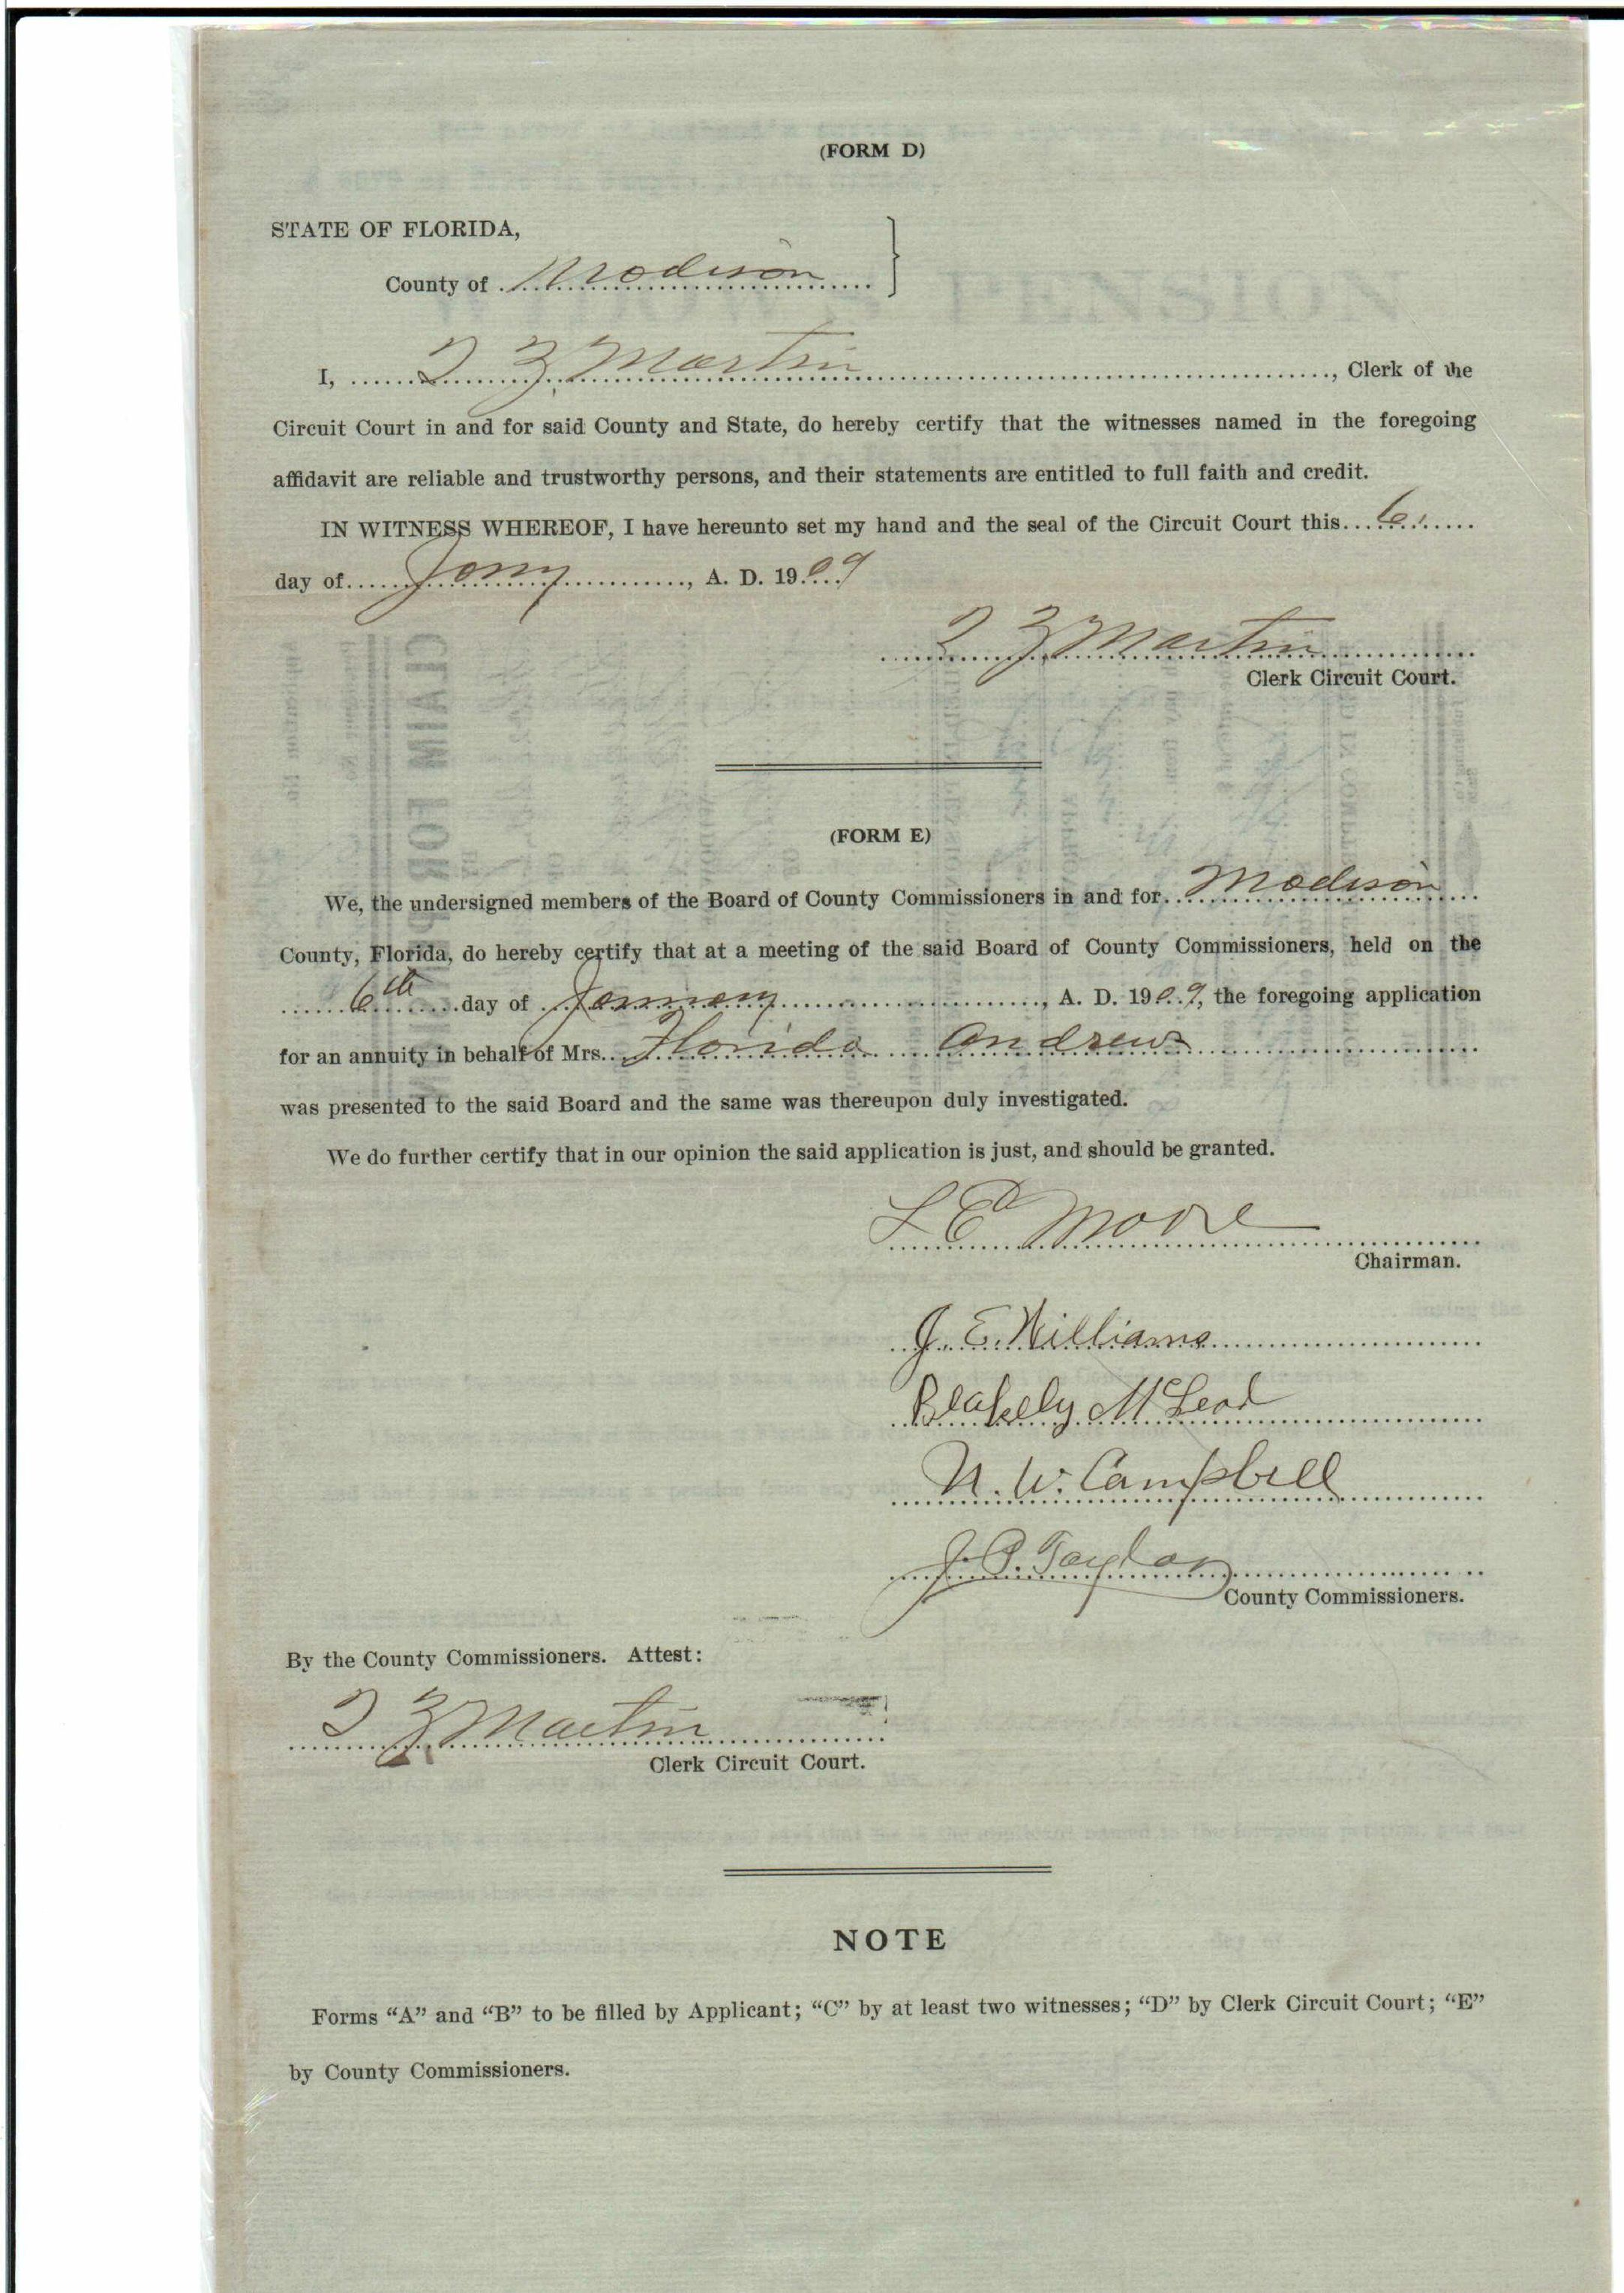 (FORM D)
STATE OF FLORIDA,
County of Madison
I, Martin, Clerk of the
Circuit Court in and for said County and State, do hereby certify that the witnesses named in the foregoing
affidavit are reliable and trustworthy persons, and their statements are entitled to full faith and credit.
IN WITNESS WHEREOF, I have hereunto set my hand and the seal of the Circuit Court this 6
day of Jany, A. D. 1909
Martin
Clerk Circuit Court.
(FORM E)
We, the undersigned members of the Board of County Commissioners in and for Madison
County, Florida, do hereby certify that at a meeting of the said Board of County Commissioners, held on the
6th day of January, A. D. 1909, the foregoing application
for an annuity in behalf of Mrs. Florida Andrews
was presented to the said Board and the same was thereupon duly investigated.
We do further certify that in our opinion the said application is just, and should be granted.
L E Moore
Chairman.
J. E. Williams
Blakely McLeod
N. W. Campbell
J. P. Taylor
County Commissioners.
By the County Commissioners. Attest:
Martin
Clerk Circuit Court.
NOTE
Forms “A” and “B” to be filled by Applicant; “C” by at least two witnesses; “D” by Clerk Circuit Court; “E”
by County Commissioners.